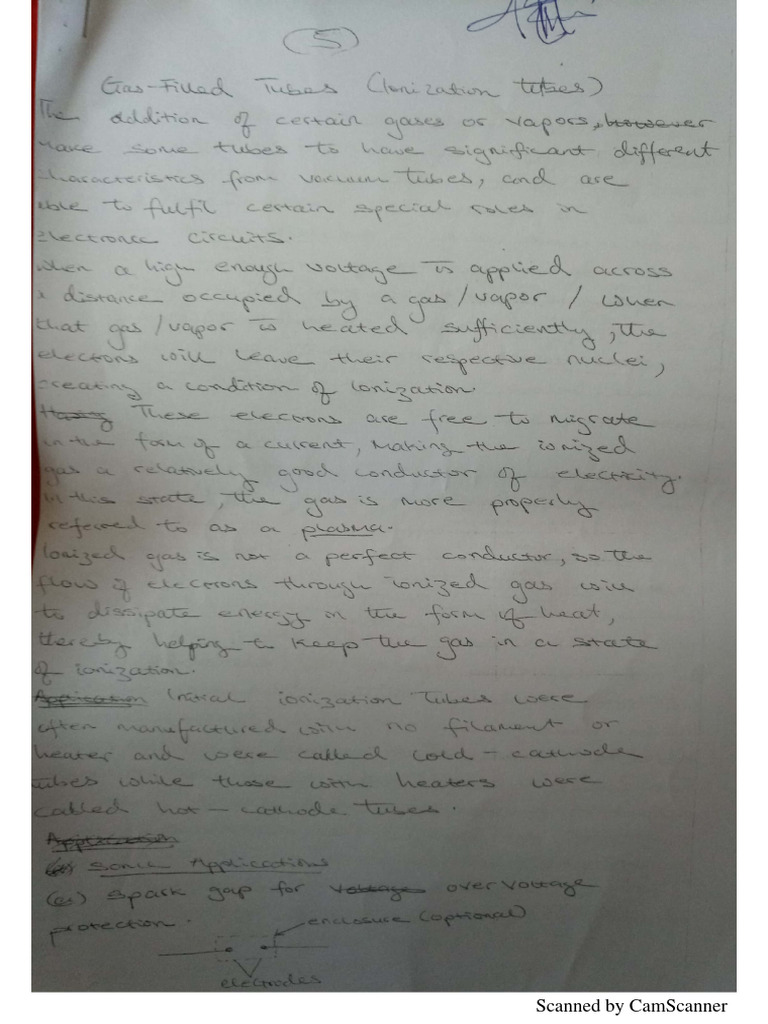 (5)
Gas-Filled Tubes (Ionization tubes)
The addition of certain gases or vapors, however
make some tubes to have significant different
characteristics from vacuum tubes, and are
able to fulfil certain special roles in
electronic circuits.
when a high enough voltage is applied across
a distance occupied by a gas/vapor / when
that gas/vapor is heated sufficiently, the
electrons will leave their respective nuclei,
creating a condition of ionization.
Having These electrons are free to migrate
in the form of a current, making the ionized
gas a relatively good conductor of electricity.
in this state, the gas is more properly
referred to as a plasma.
Ionized gas is not a perfect conductor, so the
flow of electrons through ionized gas will
to dissipate energy in the form of heat,
thereby helping to keep the gas in a state
of ionization.
Application Initial ionization tubes were
often manufactured with no filament or
heater and were called cold-cathode
tubes while those with heaters were
called hot-cathode tubes.
Application
Some Applications
(a) spark gap for voltage over voltage
protection.
enclosure (optional)
electrodes
Scanned by CamScanner